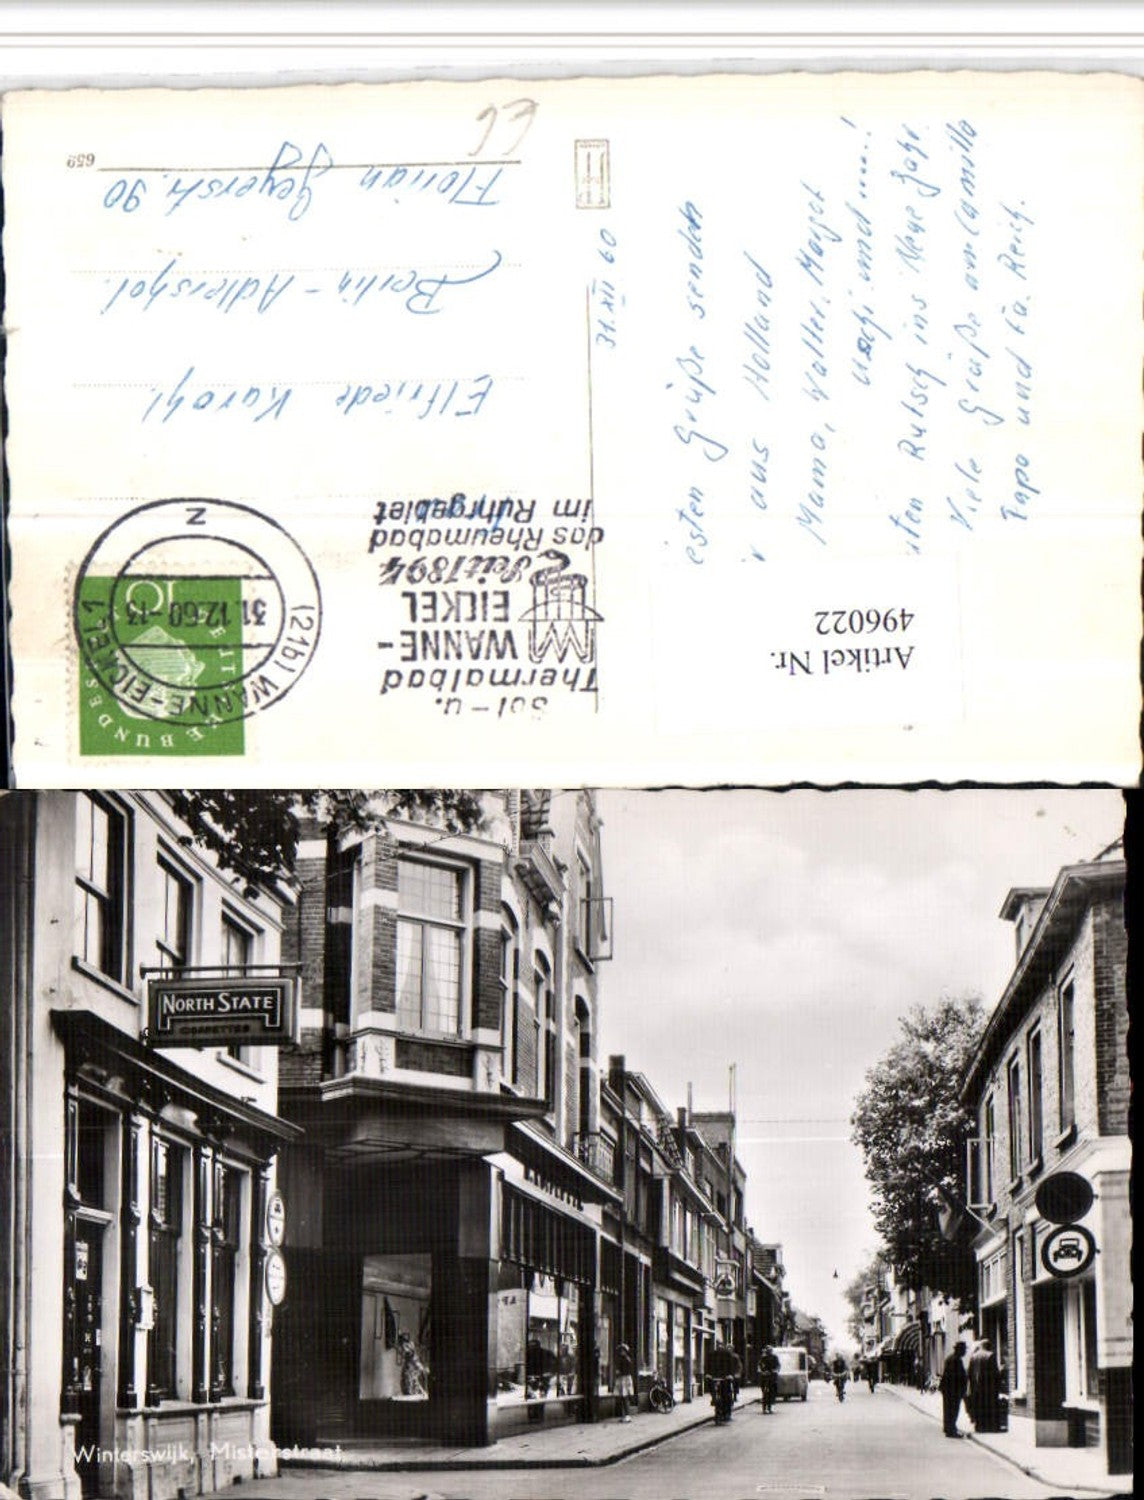 31. XII 60
esten Grüße senden
aus Holland
Mama, Walter, Margot
uschi und
uten Rutsch ins Neue Jahr.
Viele Grüße an Camilla
Papa und Fa. Reich.
Elfriede Karohl.
Berlin-Adlershof.
Florian Geyerstr. 90
659
Artikel Nr.
496022
Sol- u.
Thermalbad
WANNE-
EICKEL
Seit 1894
das Rheumabad
im Ruhrgebiet
(21b) WANNE-EICKEL 1
31.12.60-13
z
10
NORTH STATE
CIGARETTES
Winterswijk, Misterstraat